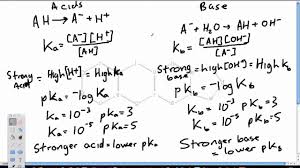 Acids
AH → A⁻ + H⁺
Ka = [A⁻][H⁺] / [AH]
Strong acid = High[H⁺] = High Ka
pKa = -log Ka
Ka = 10⁻³ pKa = 3
Ka = 10⁻⁵ pKa = 5
Stronger acid = lower pKa
Base
A⁻ + H₂O → AH + OH⁻
Kb = [AH][OH⁻] / [A⁻]
Strong base = high[OH⁻] = High Kb
pKb = -log Kb
Kb = 10⁻³ pKb = 3
Kb = 10⁻⁵ pKb = 5
Stronger base = lower pKb